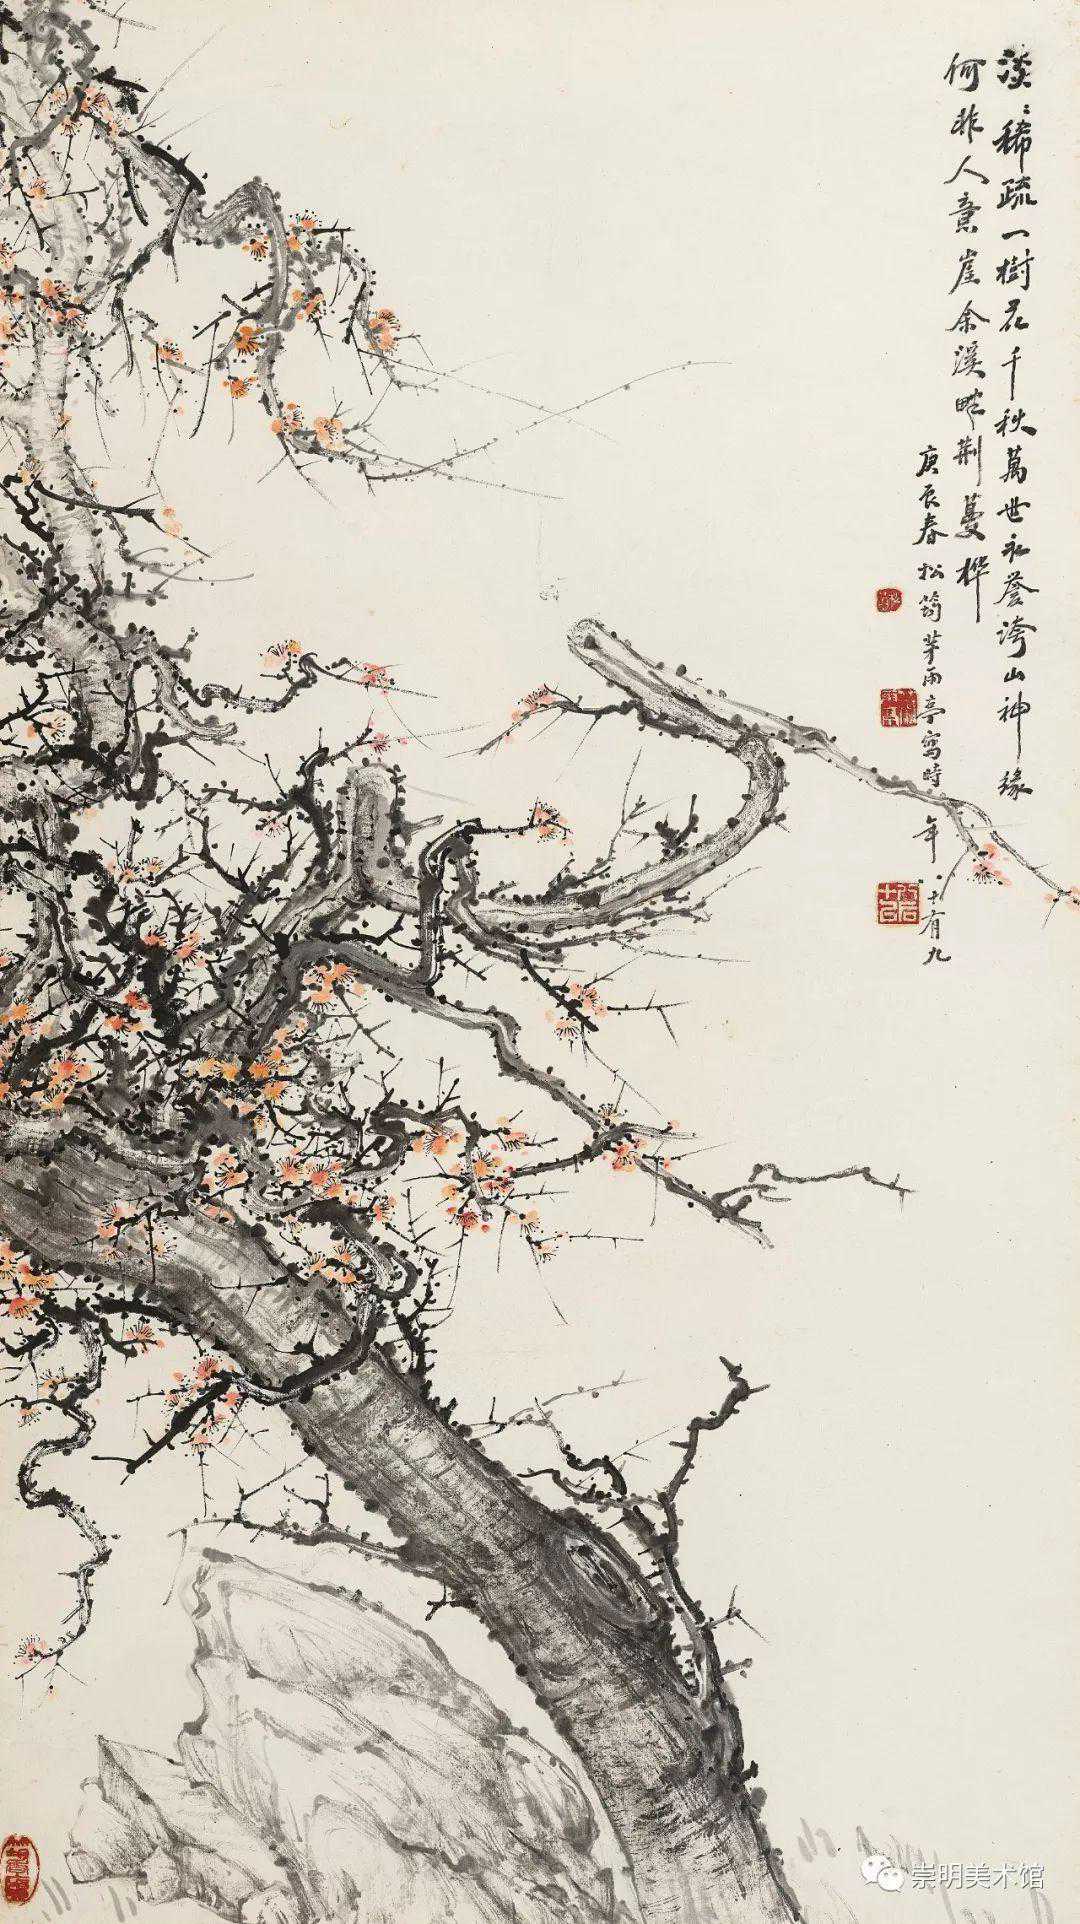 淡〻稀疏一樹花千秋萬世永譽誇山神緣
何非人意崖余溪畔荆蔓樺
庚辰春松筠茅雨亭寫時年八十有九
崇明美术馆